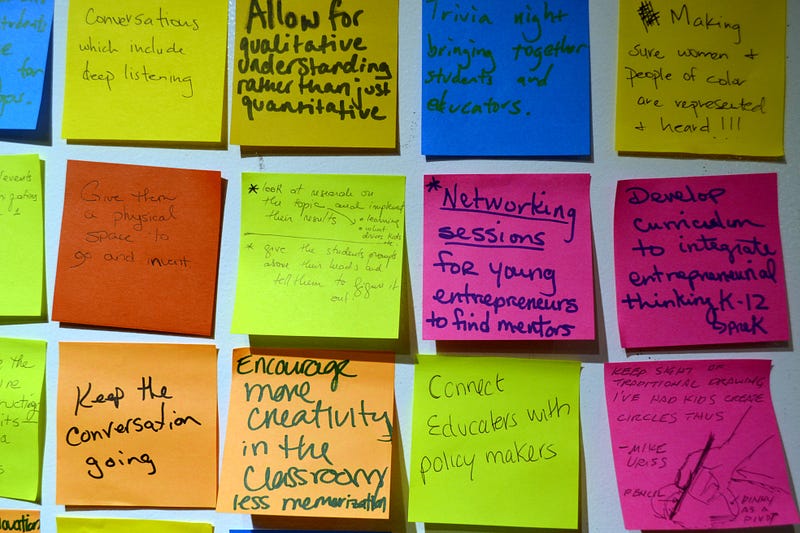 Conversations
which include
deep listening
Allow for
qualitative
understanding
rather than just
quantitative
Trivia night
bringing together
students and
educators.
* Making
sure women +
people of color
are represented
+ heard!!!
Give them
a physical
space to
go and invent
* look at research on
the topic and implement
their results
• learning
• what
drives kids
etc.
* give the students prompts
above their heads and
tell them to figure it
out!
* Networking
sessions
for young
entrepreneurs
to find mentors
Develop
curriculum
to integrate
entrepreneurial
thinking K-12
preK
Keep the
conversation
going
Encourage
more
creativity
in the
classroom
less memorization
Connect
Educators with
policy makers
KEEP SIGHT OF
TRADITIONAL DRAWING
I'VE HAD KIDS CREATE
CIRCLES THUS
-MIKE
PENCIL
PINKY
AS A
PIVOT